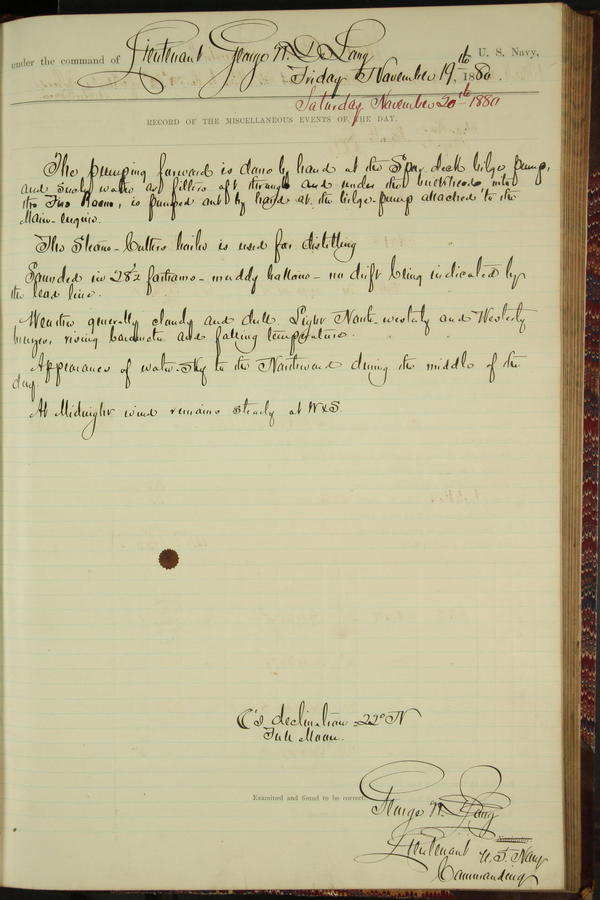 under the command of Lieutenant George W. De Long U. S. Navy,
Friday November 19th 1880.
Saturday November 20th 1880
RECORD OF THE MISCELLANEOUS EVENTS OF THE DAY.
The pumping forward is done by hand at the Spar deck bilge pump,
and such water as filters aft through and under the bulkhead into
the Fire Room, is pumped out by hand at the bilge-pump attached to the
Main-engine.
The Steam-Cutters boiler is used for distilling
Sounded in 28½ fathoms - muddy bottom - no drift being indicated by
the lead line.
Weather generally cloudy and dull. Light North-westerly and Westerly
breezes, rising barometer and falling temperature.
Appearance of water-sky to the Northward during the middle of the
day.
At Midnight wind remains steady at WxS.
☾'s declination 22° N
Full Moon.
Examined and found to be correct.
George W. De Long
Navigator.
Lieutenant U.S. Navy
Commanding